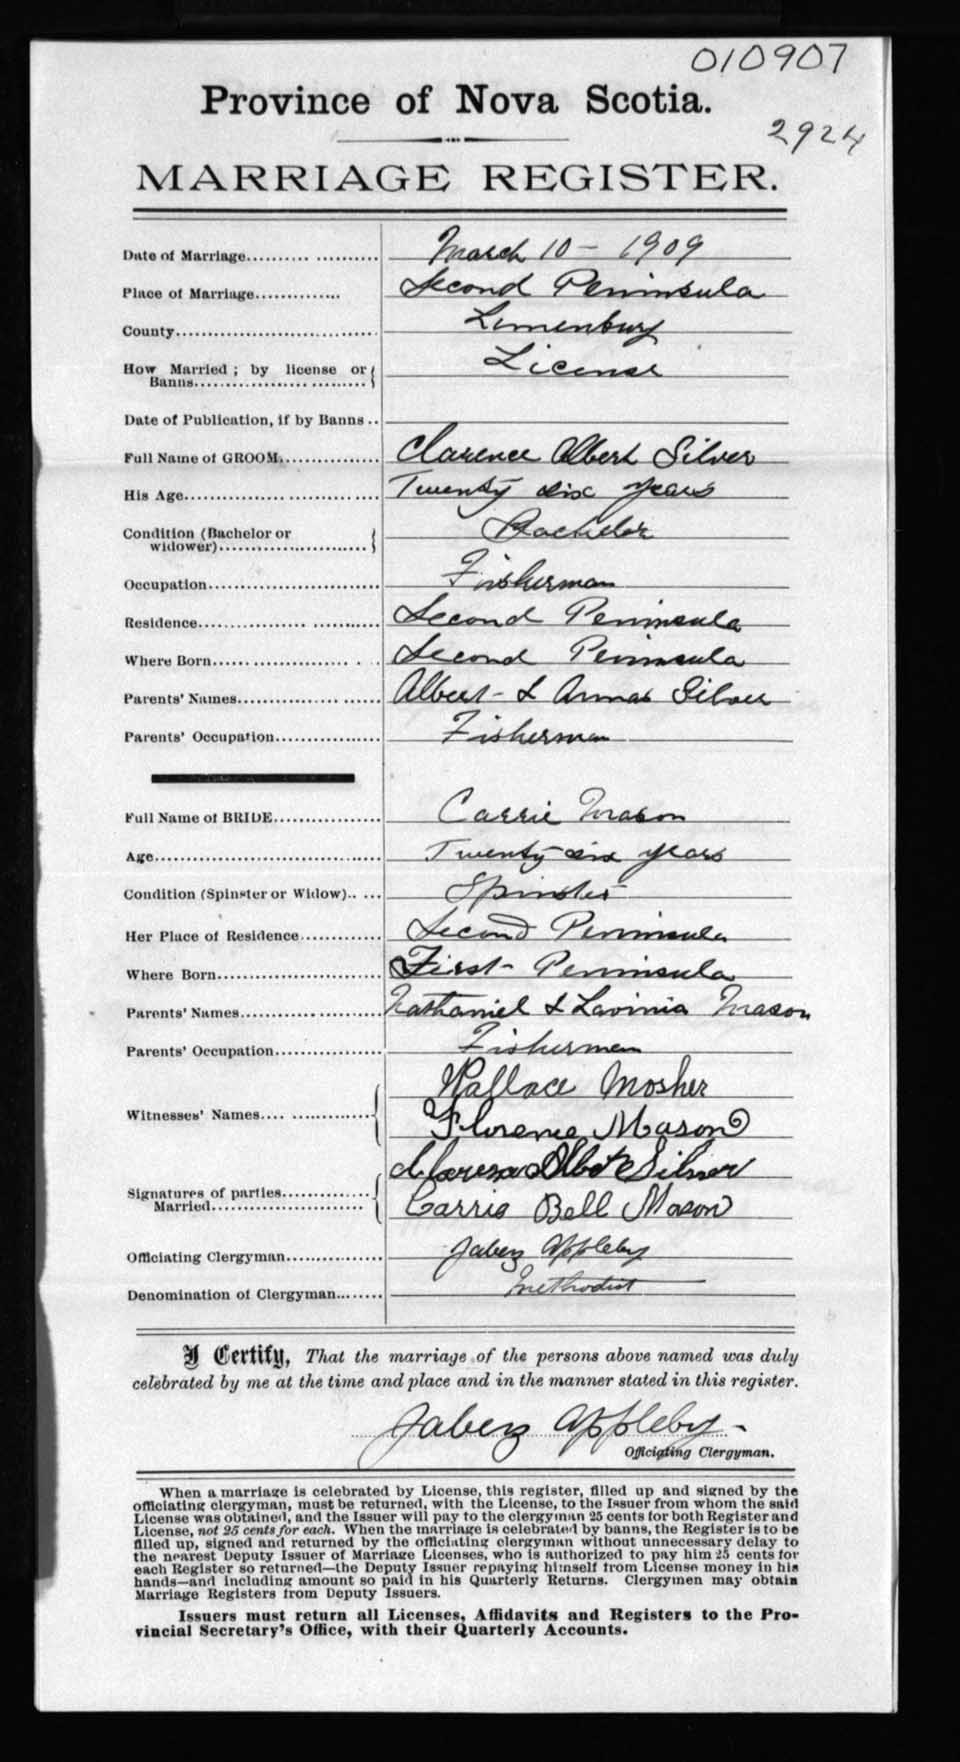 010907
Province of Nova Scotia.
2924
MARRIAGE REGISTER.
Date of Marriage.................. March 10 - 1909
Place of Marriage.............. Second Peninsula
County.............................. Lunenburg
How Married; by license or Banns.............................. License
Date of Publication, if by Banns ..
Full Name of GROOM............... Clarence Albert Silver
His Age.............................. Twenty six years
Condition (Bachelor or widower)........................ Bachelor
Occupation.......................... Fisherman
Residence........................... Second Peninsula
Where Born.......................... Second Peninsula
Parents' Names...................... Albert & Silver
Parents' Occupation................ Fisherman
Full Name of BRIDE................. Carrie Mason
Age.................................. Twenty six years
Condition (Spinster or Widow)..... Spinster
Her Place of Residence............ Second Peninsula
Where Born.......................... First Peninsula
Parents' Names...................... Nathaniel & Lavinia Mason
Parents' Occupation................ Fisherman
Witnesses' Names.................. Wallace Mosher
Florence Mason
Signatures of parties Married....................... Silver
Carrie Bell Mason
Officiating Clergyman.............. Jabez Appleby
Denomination of Clergyman........ Methodist
I Certify, That the marriage of the persons above named was duly
celebrated by me at the time and place and in the manner stated in this register.
Jabez Appleby
Officiating Clergyman.
When a marriage is celebrated by License, this register, filled up and signed by the
officiating clergyman, must be returned, with the License, to the Issuer from whom the said
License was obtained, and the Issuer will pay to the clergyman 25 cents for both Register and
License, not 25 cents for each. When the marriage is celebrated by banns, the Register is to be
filled up, signed and returned by the officiating clergyman without unnecessary delay to
the nearest Deputy Issuer of Marriage Licenses, who is authorized to pay him 25 cents for
each Register so returned—the Deputy Issuer repaying himself from License money in his
hands—and including amount so paid in his Quarterly Returns. Clergymen may obtain
Marriage Registers from Deputy Issuers.
Issuers must return all Licenses, Affidavits and Registers to the Pro-
vincial Secretary's Office, with their Quarterly Accounts.